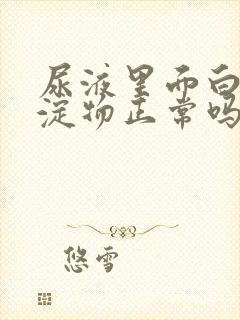 尿液里面白
淀物正常吗
悠雪